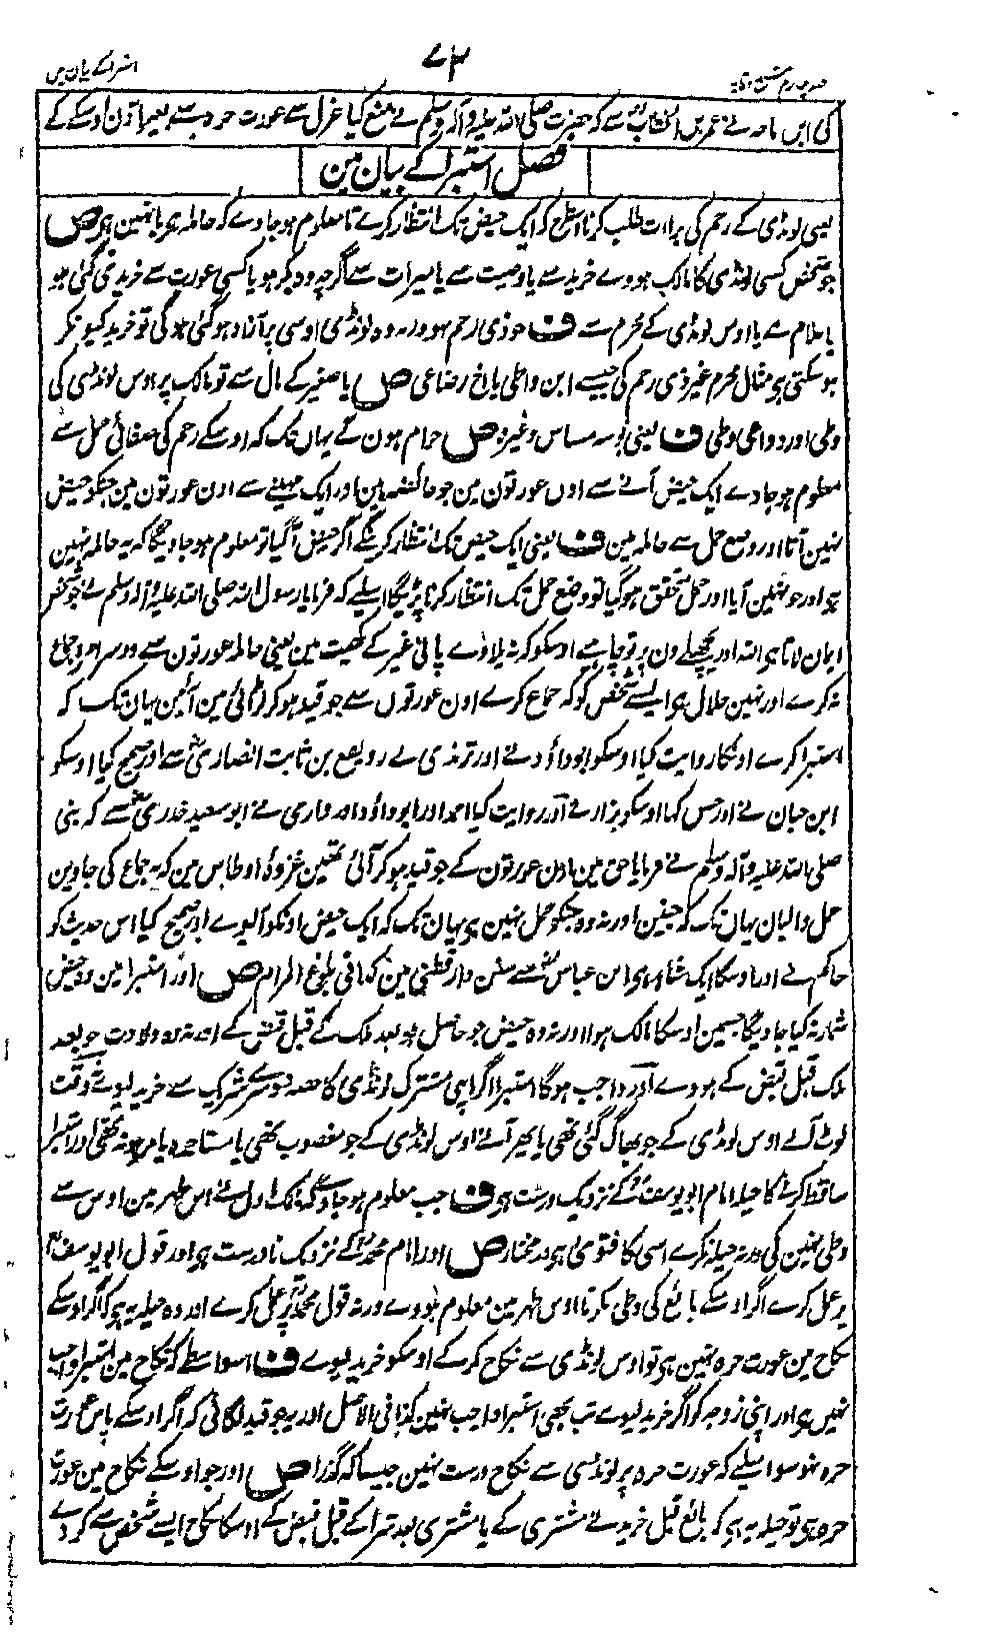 ۷۳
استبراکے بیان میں
کی ابن ماجہ نے عمر بن الخطاب سے کہ حضرت صلی اللہ علیہ وآلہ وسلم نے منع کیا عزل سے عورت حرہ سے بغیر اذن اوسکے کے
فصل استبراکے بیان مین
یعنی لونڈی کے رحم کی براءت طلب کرنا اسطرح کہ ایک حیض تک انتظار کرے تا معلوم ہوجاوے کہ حاملہ ہی یا نہین ہی ص
جو شخص کسی لونڈی کا مالک ہووے خرید سے یا وصیت سے یا میراث سے اگرچہ وہ بکر ہو یا کسی عورت سے خریدی گئی ہو
یا غلام سے یا اوس لونڈی کے محرم سے ف جو ذی رحم نہو ورنہ وہ لونڈی اوسی پر آزاد ہوگئی ہوگی تو خرید کیونکر
ہوسکتی ہی مثال محرم غیر ذی رحم کی جیسے ابن واطی یا اخ رضاعی ص یا صغیر کے مال سے تو مالک پر اوس لونڈی کی
وطی اور دواعی وطی ف یعنی بوسہ مساس وغیرہ ص حرام ہون گے یہاں تک کہ اوسکے رحم کی صفائی حمل سے
معلوم ہوجاوے ایک حیض آنے سے اون عورتون مین جو حائضہ ہین اور ایک مہینے سے اون عورتون مین جنکو حیض
نہین آتا اور وضع حمل سے حاملہ مین ف یعنی ایک حیض تک انتظار کرینگے اگر حیض آگیا تو معلوم ہوجاویگا کہ یہ حاملہ نہین
ہی اور جو نہین آیا اور حمل متحقق ہوگیا تو وضع حمل تک انتظار کرنا پڑیگا اسلیے کہ فرمایا رسول اللہ صلی اللہ علیہ وآلہ وسلم نے جو شخص
ایمان لاتا ہی اللہ اور پچھلے دن پر تو چاہیے اوسکو کہ نہ پلاوے پانی غیر کے کھیت مین یعنی حاملہ عورتون سے دوسرا مرد جماع
نہ کرے اور نہین حلال ہی ایسے شخص کو کہ جماع کرے اون عورتوں سے جو قید ہوکر لڑائی مین آئین یہان تک کہ
استبرا کرے اونکا روایت کیا اوسکو ابوداؤد نے اور ترمذی نے رویفع بن ثابت انصاری سے اور صحیح کیا اوسکو
ابن حبان نے اور حسن کہا اوسکو بزار نے اور روایت کیا احمد اور ابوداؤد اور دارمی نے ابوسعید خدری سے کہ نبی
صلی اللہ علیہ وآلہ وسلم نے فرمایا حق مین اون عورتون کے جو قید ہوکر آئی تھین غزوۂ اوطاس مین کہ نہ جماع کی جاوین
حمل والیان یہان تک کہ جنین اور نہ وہ جنکو حمل نہین ہی یہان تک کہ ایک حیض اونکو آلیوے اور صحیح کیا اس حدیث کو
حاکم نے اور اوسکا ایک شاہد ہی ابن عباس سے سنن دارقطنی مین کذا فی بلوغ المرام ص اور استبرا مین وہ حیض
شمار نہ کیا جاویگا جسمین اوسکا مالک ہوا اور نہ وہ حیض جو حاصل ہو بعد ملک کے قبل قبض کے اور نہ وہ ولادت جو بعد
ملک قبل قبض کے ہووے اور واجب ہوگا استبرا اگر اپنی مشترک لونڈی کا حصہ دوسرے شریک سے خرید لیوے نہ وقت
لوٹ آنے اوس لونڈی کے جو بھاگ گئی تھی یا پھر آنے اوس لونڈی کے جو مغصوب تھی یا مستاجرہ یا مرہونہ تھی اور استبرا
ساقط کرنے کا حیلہ امام ابو یوسف کے نزدیک درست ہی ف جب معلوم ہوجاوے کہ مالک اول نے اس طہر مین اوس سے
وطی نہین کی ورنہ حیلہ نکرے اسی کا فتویٰ ہی درمختار ص اور امام محمد کے نزدیک نادرست ہی اور قول ابو یوسف
پر عمل کرے اگر اوسکے بائع کی وطی نکرنا اوس طہر مین معلوم ہووے ورنہ قول محمد پر عمل کرے اور وہ حیلہ یہ ہی کہ اگر اوسکے
نکاح مین عورت حرہ نہین ہی تو اوس لونڈی سے نکاح کرکے اوسکو خرید لیوے ف اسواسطے کہ نکاح مین استبرا واجب
نہین ہی اور اپنی زوجہ کو اگر خرید لیوے تب بھی استبرا واجب نہین کذا فی الاصل اور یہ جو قید لگائی کہ اگر اوسکے پاس عورت
حرہ نہو سو اسلیے کہ عورت حرہ پر لونڈی سے نکاح درست نہین جیسا کہ گذرا ص اور جو اوسکے نکاح مین عورت
حرہ ہی تو حیلہ یہ ہی کہ بائع قبل خریدنے مشتری کے یا مشتری بعد شرا کے قبل قبض کے اوسکا نکاح ایسے شخص سے کردے